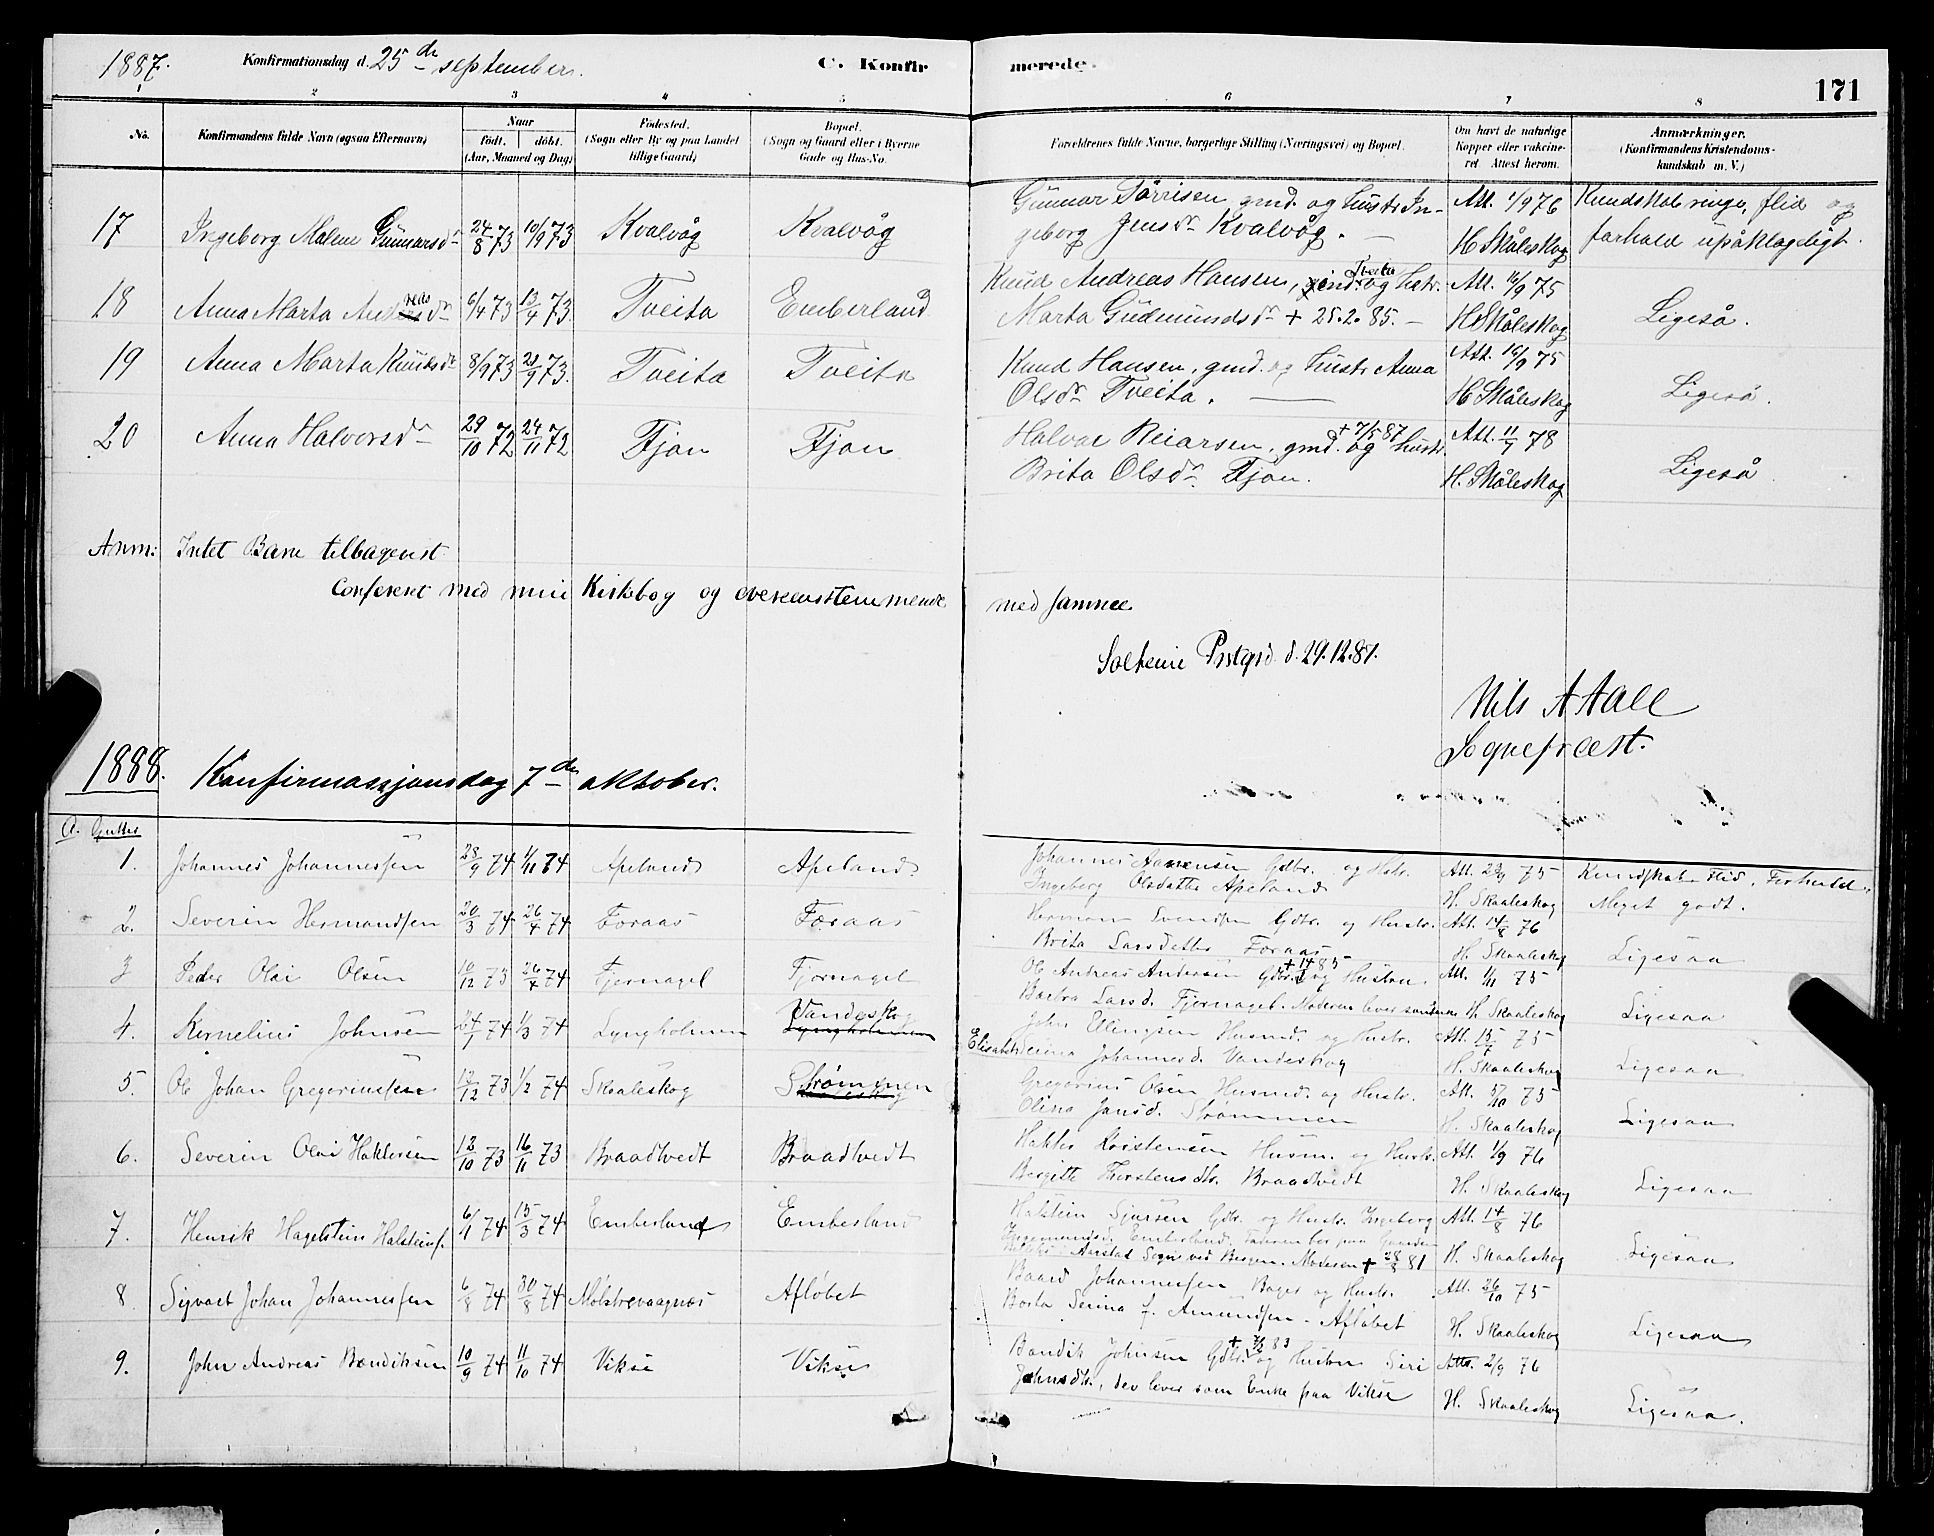 1887. Konfirmationsdag d. 25de september. C. Konfirmerede. 171
1 2 3 4 5 6 7 8
No. Konfirmandens fulde Navn (ogsaa Efternavn) Naar født. døbt. (Aar, Maaned og Dag) Fødested. (Sogn eller By og paa Landet tillige Gaard) Bopæl. (Sogn og Gaard eller i Byerne Gade og Hus-No. Forældrenes fulde Navne, borgerlige Stilling (Næringsvei) og Bopæl. Om havt de naturlige Kopper eller vakcineret. Attest herom. Anmærkninger. (Konfirmandens Kristendomskundskab m. V.)
17 Ingeborg Malene Gunnarsdr 24/8 73 10/9 73 Kvalvåg Kvalvåg Gunnar Tørrisen, gmd. og hustr. In- Att. 1/9 76 Kundskab ringe, flid og
geborg Jensdr Kvalvåg. — H Skåleskog forhold upåklageligt.
18 Anna Marta Andersdr 6/4 73 13/4 73 Tveita Emberland Knud Andreas Hansen, gmd. Tveita og hstr. Att. 16/9 75 Ligeså.
Marta Gudmundsdr + 25.2.85. — H Skåleskog
19 Anna Marta Knutsdr 8/9 73 21/9 73. Tveita Tveita Knud Hansen, gmd. og hustr. Anna Att. 16/9 75 Ligeså.
Olsdr Tveita. — H Skåleskog
20 Anna Halvorsdr 29/10 72 24/11 72 Fjon Fjon Halvor Reiarsen, gmd. + 7/5 87 og hustr. Att. 11/7 78 Ligeså
Brita Olsdr Fjon. H. Skåleskog
Anm: Intet Barn tilbagevist
Confereret med min Kirkebog og overensstemmende med samme.
Prstgrd. d. 29.12.87.
Nils A Aall
Sogneprest.
1888. Konfirmassjonsdag 7de oktober.
a. Gutter
1. Johannes Johannessen 28/9 74 1/11 74 Apeland Apeland Johannes Aamensen Gdbr. og Hstr. Att. 23/9 75 Kundskab Flid, Forhold
Ingeborg Olsdatter Apeland H. Skaaleskog Meget godt.
2. Severin Hermandsen 20/3 74 26/4 74 Foraas Foraas Herman Svendsen Gdbr. og Hustr. Att. 14/8 76 Ligesaa
Brita Larsdatter Foraas H. Skaaleskog
3 Peder Olai Olsen 10/12 73 26/4 74 Fjernagel Fjernagel Ole Andreas Andersen Gdbr. + 14 85 og Hustru Att. 1/11 75 Ligesaa
Larsd. Fjernagel. Moderen lever H. Skaaleskog
4. Kornelius Johnsen 24/1 74 1/3 74 Lyngholmen Vandeskog Lyngholmen John Ellingsen Husmd. og Hustr. Att. 15/7 75 Ligesaa
Elisabeth Serina Johannesd. Vandeskog H. Skaaleskog
5. Ole Johan Gregoriussen 12/12 73 1/2 74 Skaaleskog Strømmen Gregorius Olsen Husmd. og Hustr. Att. 5/10 75 Ligesaa
Olina Jansd. Strømmen H. Skaaleskog
6. Severin Olai Haktorsen 12/10 73 16/11 73 Braadtvedt Braadtvedt Haktor Torstensen Husm. og Hustr. Att. 1/9 76 Ligesaa
Bergitte Thorstensdtr. Braadtvedt H. Skaaleskog
7. Henrik Hagelstein Halsteins. 6/1 74 15/3 74 Emberland Emberland Halstein Sjursen Gdbr. og Hustr. Ingeborg Att. 14/8 76 Ligesaa
Ingemundsd. Emberland, Faderen bor paa Gaarden
Aarstad Sogn ved Bergen. Moderen + 28/8 81 H. Skaaleskog
8 Sigvart Johan Johannessen 6/8 74 30/8 74 Mølstrevaagnæs Afløbet Baard Johannessen Bager og Hustr. Att. 26/10 75 Ligesaa
Serina f. Amundsen - Afløbet H. Skaaleskog
9. John Andreas Bendiksen 10/9 74 11/10 74 Vikse Vikse Bendik Johnsen Gdbr. + 83 og Hustru Siri Att. 2/9 76 Ligesaa.
Johnsdtr., der lever som Enke paa Vikse H. Skaaleskog